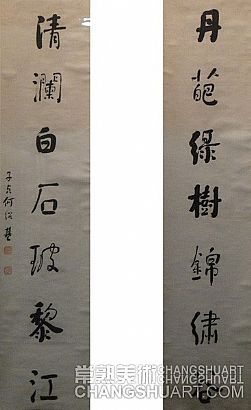 丹葩綠樹錦繡
清瀾白石玻黎江
子貞何紹基
常熟美術 CHANGSHUART.COM
CHANGSHUART.COM